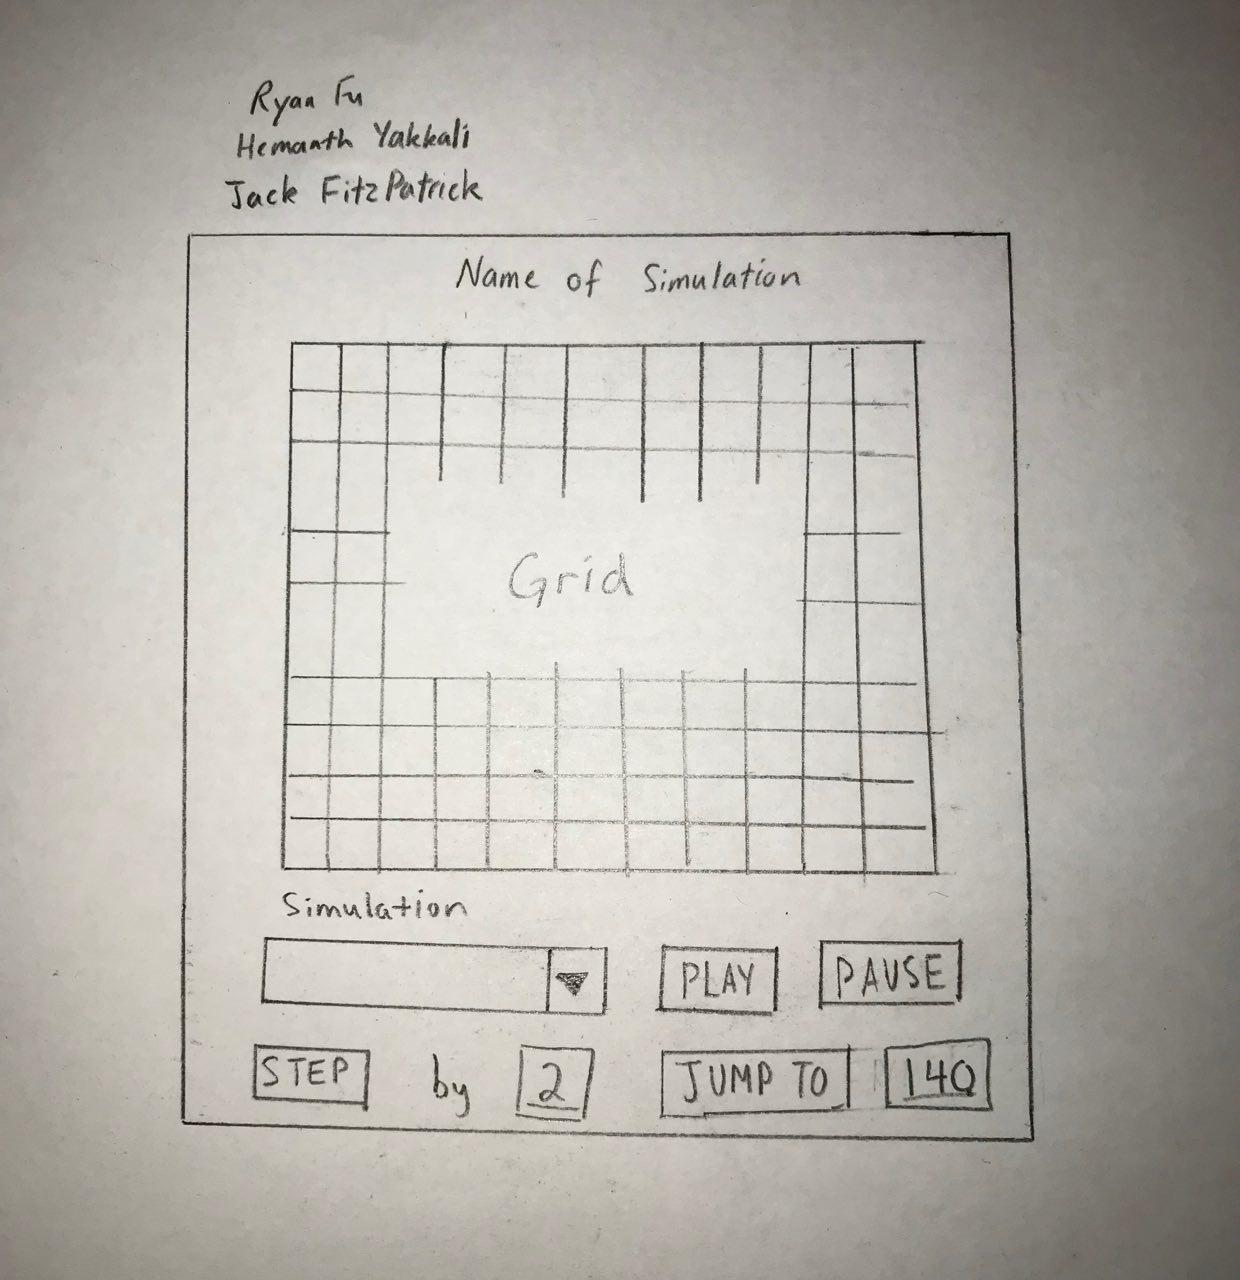 Ryan Fu
Hemanth Yakkali
Jack FitzPatrick
Name of Simulation
Grid
Simulation
PLAY PAUSE
STEP by 2 JUMP TO 140